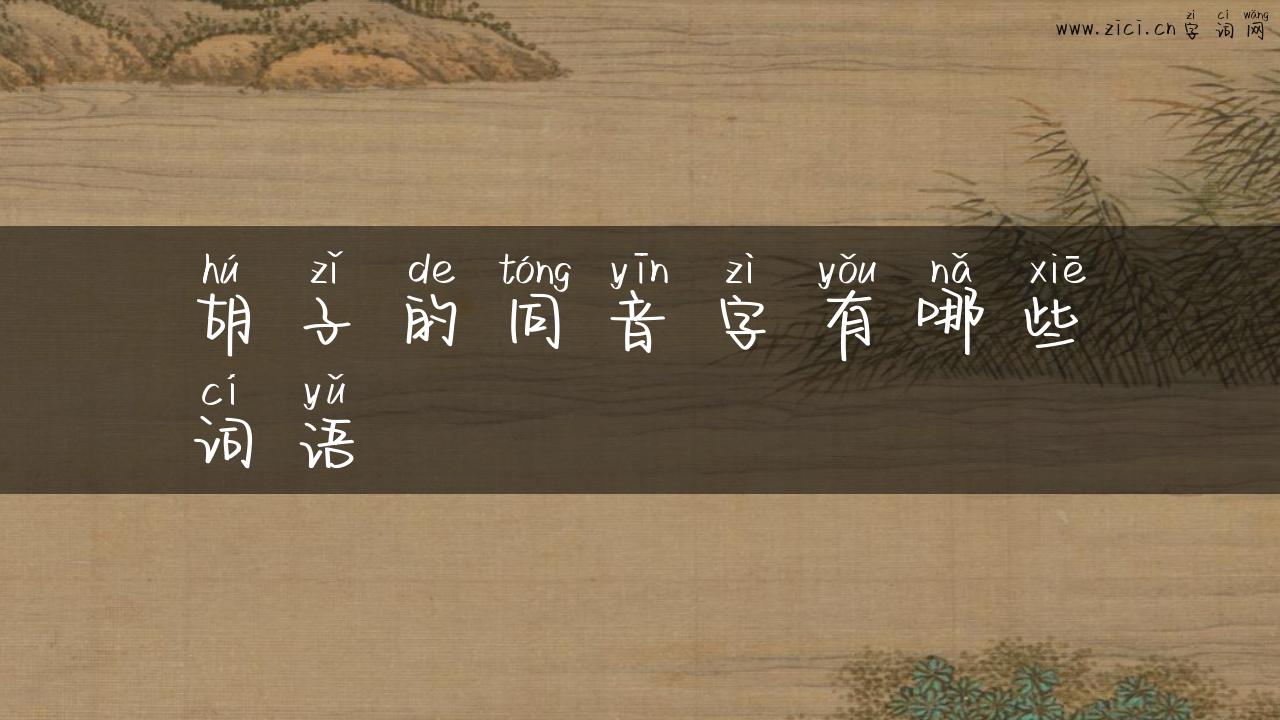 zì cí wǎng
www.zici.cn字词网
hú zǐ de tóng yīn zì yǒu nǎ xiē
胡子的同音字有哪些
cí yǔ
词语